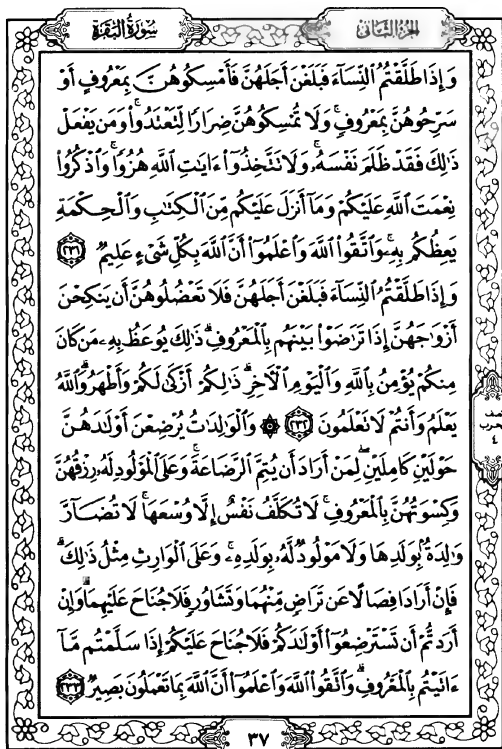 سُورَةُ البَقَرَةِ
الجُزءُ الثَّانِي
وَإِذَا طَلَّقْتُمُ ٱلنِّسَآءَ فَبَلَغْنَ أَجَلَهُنَّ فَأَمْسِكُوهُنَّ بِمَعْرُوفٍ أَوْ
سَرِّحُوهُنَّ بِمَعْرُوفٍۚ وَلَا تُمْسِكُوهُنَّ ضِرَارًا لِّتَعْتَدُوا۟ۚ وَمَن يَفْعَلْ
ذَٰلِكَ فَقَدْ ظَلَمَ نَفْسَهُۥۚ وَلَا تَتَّخِذُوٓا۟ ءَايَٰتِ ٱللَّهِ هُزُوًاۚ وَٱذْكُرُوا۟
نِعْمَتَ ٱللَّهِ عَلَيْكُمْ وَمَآ أَنزَلَ عَلَيْكُم مِّنَ ٱلْكِتَٰبِ وَٱلْحِكْمَةِ
يَعِظُكُم بِهِۦۚ وَٱتَّقُوا۟ ٱللَّهَ وَٱعْلَمُوٓا۟ أَنَّ ٱللَّهَ بِكُلِّ شَىْءٍ عَلِيمٌ ٢٣١
وَإِذَا طَلَّقْتُمُ ٱلنِّسَآءَ فَبَلَغْنَ أَجَلَهُنَّ فَلَا تَعْضُلُوهُنَّ أَن يَنكِحْنَ
أَزْوَٰجَهُنَّ إِذَا تَرَٰضَوْا۟ بَيْنَهُم بِٱلْمَعْرُوفِۗ ذَٰلِكَ يُوعَظُ بِهِۦ مَن كَانَ
مِنكُمْ يُؤْمِنُ بِٱللَّهِ وَٱلْيَوْمِ ٱلْءَاخِرِۗ ذَٰلِكُمْ أَزْكَىٰ لَكُمْ وَأَطْهَرُۗ وَٱللَّهُ
يَعْلَمُ وَأَنتُمْ لَا تَعْلَمُونَ ٢٣٢ ۞ وَٱلْوَٰلِدَٰتُ يُرْضِعْنَ أَوْلَٰدَهُنَّ
حَوْلَيْنِ كَامِلَيْنِۖ لِمَنْ أَرَادَ أَن يُتِمَّ ٱلرَّضَاعَةَۚ وَعَلَى ٱلْمَوْلُودِ لَهُۥ رِزْقُهُنَّ
وَكِسْوَتُهُنَّ بِٱلْمَعْرُوفِۚ لَا تُكَلَّفُ نَفْسٌ إِلَّا وُسْعَهَاۚ لَا تُضَآرَّ
وَٰلِدَةٌۢ بِوَلَدِهَا وَلَا مَوْلُودٌ لَّهُۥ بِوَلَدِهِۦۚ وَعَلَى ٱلْوَارِثِ مِثْلُ ذَٰلِكَۗ
فَإِنْ أَرَادَا فِصَالًا عَن تَرَاضٍ مِّنْهُمَا وَتَشَاوُرٍ فَلَا جُنَاحَ عَلَيْهِمَاۗ وَإِنْ
أَرَدتُّمْ أَن تَسْتَرْضِعُوٓا۟ أَوْلَٰدَكُمْ فَلَا جُنَاحَ عَلَيْكُمْ إِذَا سَلَّمْتُم مَّآ
ءَاتَيْتُم بِٱلْمَعْرُوفِۗ وَٱتَّقُوا۟ ٱللَّهَ وَٱعْلَمُوٓا۟ أَنَّ ٱللَّهَ بِمَا تَعْمَلُونَ بَصِيرٌ ٢٣٣
٣٧